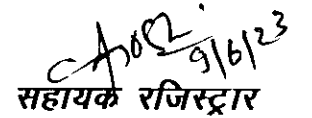 9/6/23
सहायक रजिस्ट्रार